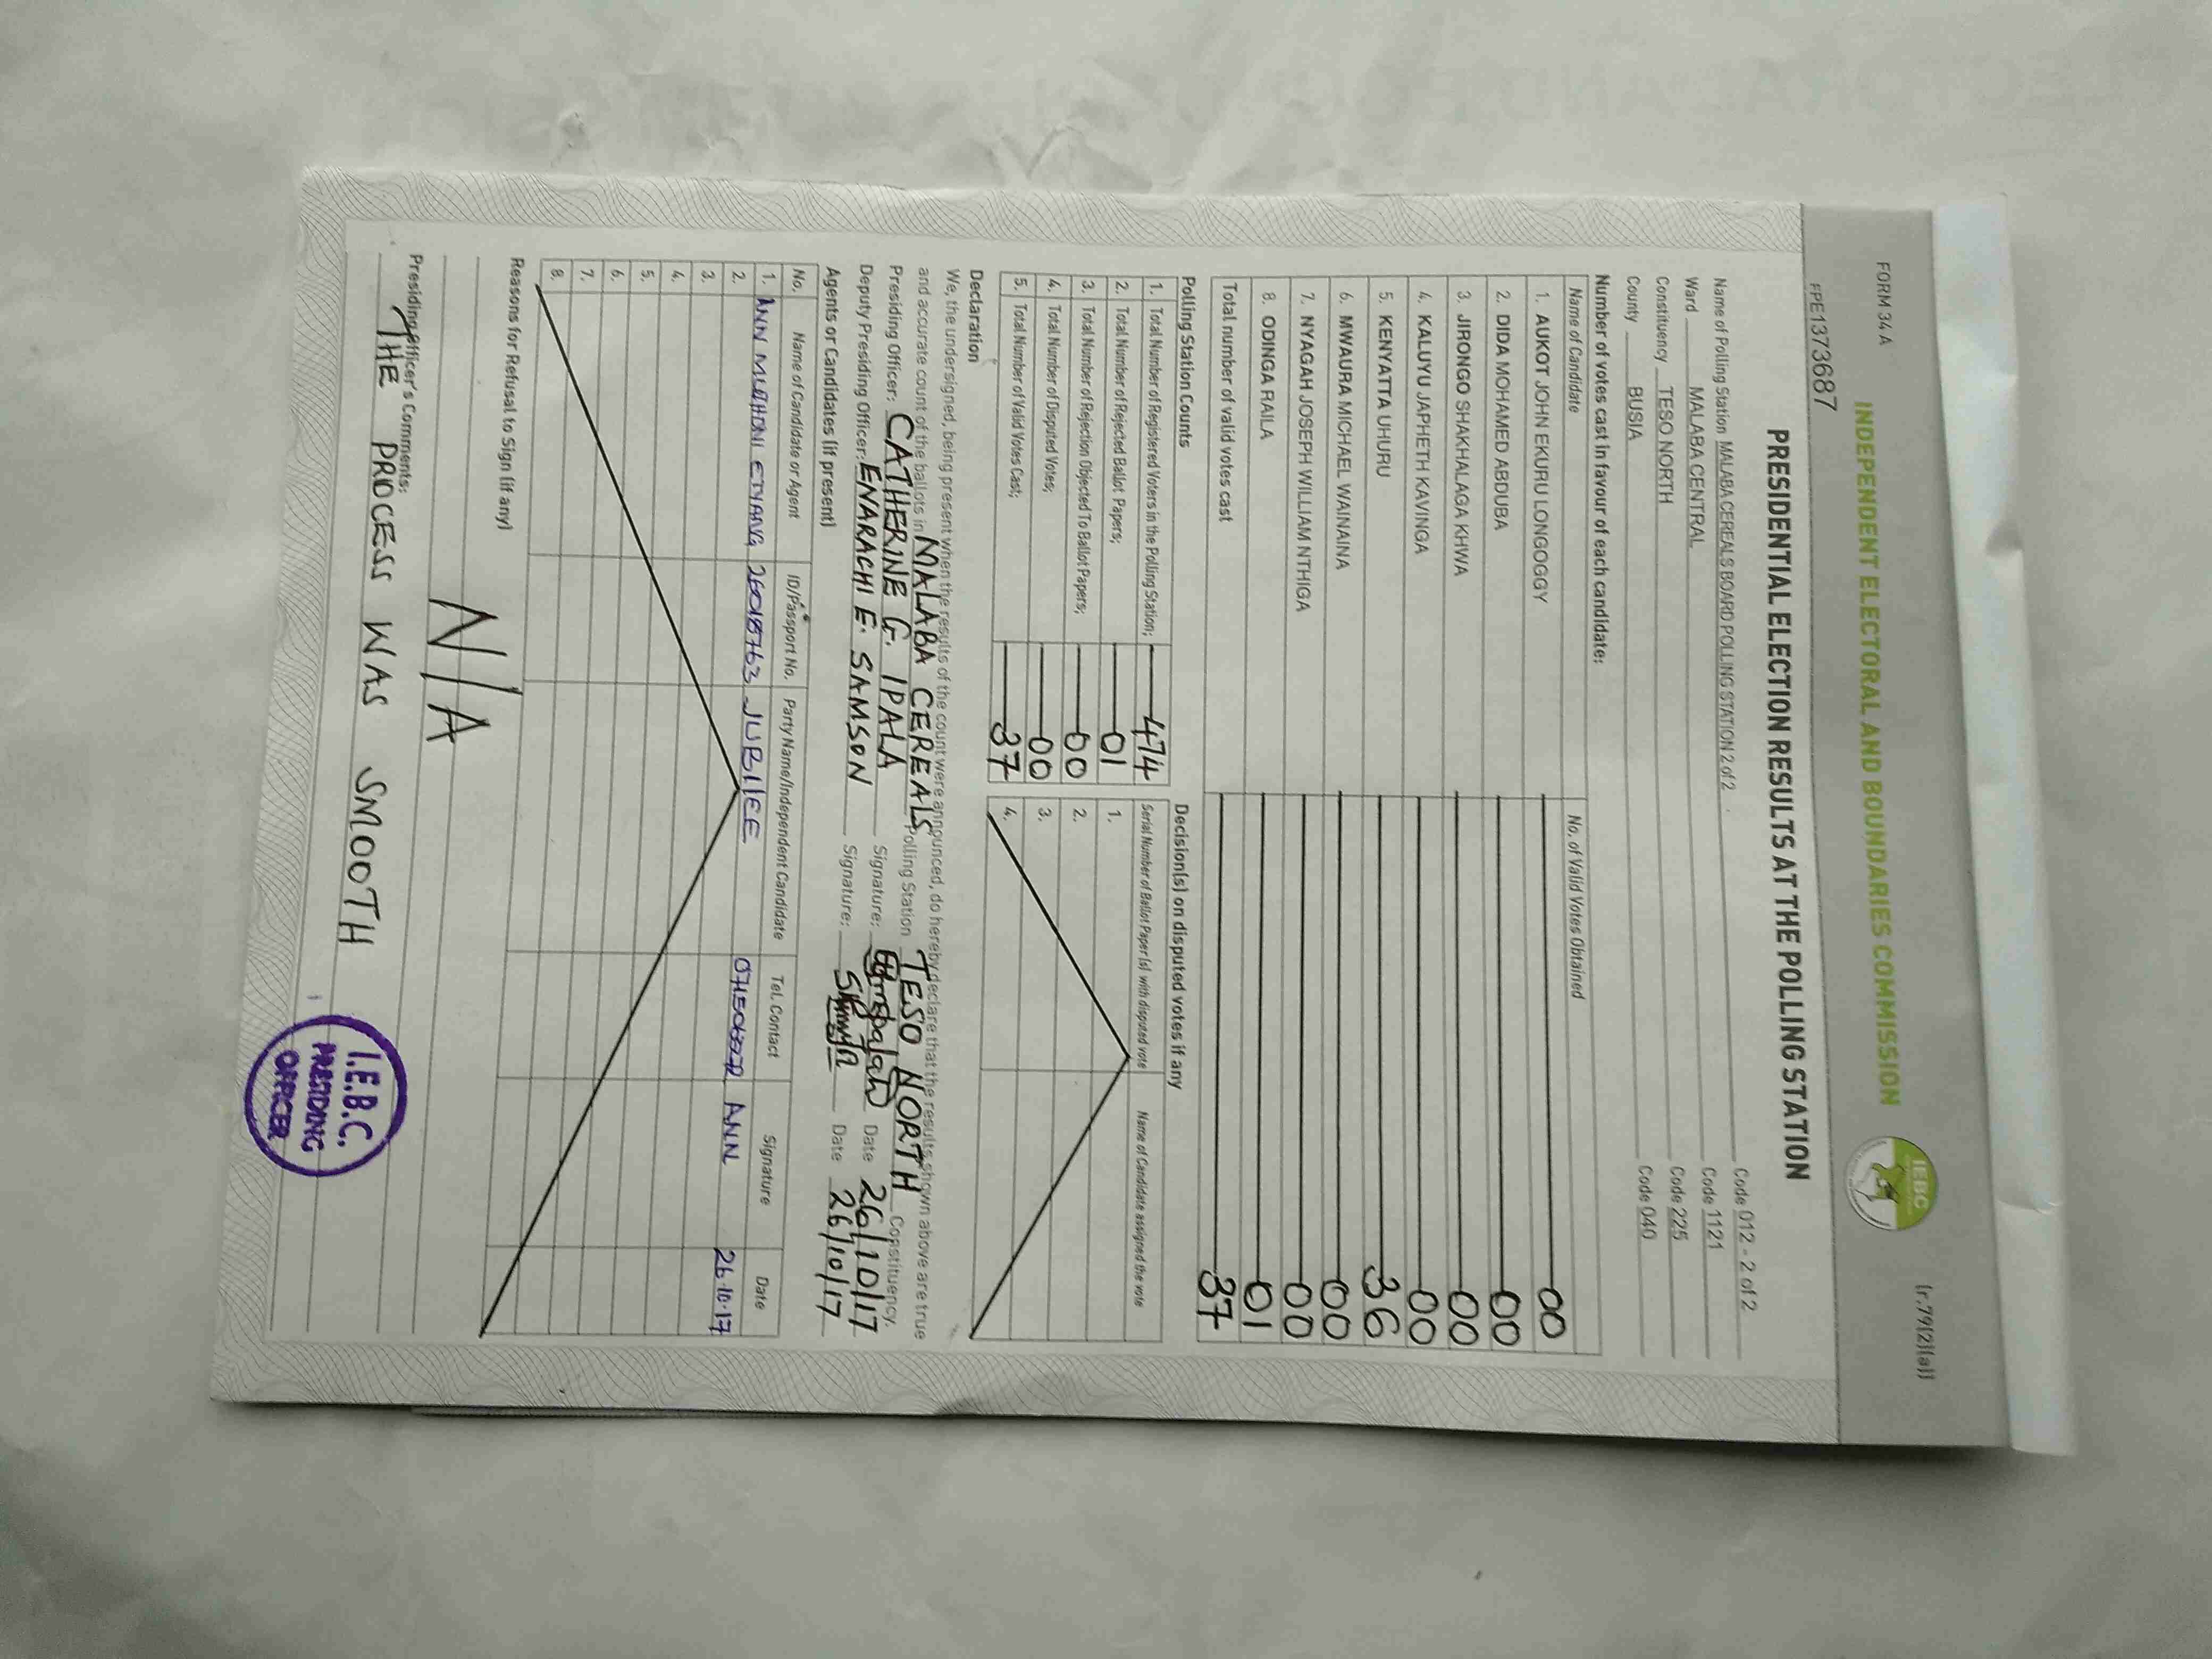 FORM 34 A
(r.79(2)(a))
INDEPENDENT ELECTORAL AND BOUNDARIES COMMISSION
IEBC
FPE1373687
PRESIDENTIAL ELECTION RESULTS AT THE POLLING STATION
Name of Polling Station MALABA CEREALS BOARD POLLING STATION 2 of 2 Code 012 - 2 of 2
Ward MALABA CENTRAL Code 1121
Constituency TESO NORTH Code 225
County BUSIA Code 040
Number of votes cast in favour of each candidate:
Name of Candidate No. of Valid Votes Obtained
1. AUKOT JOHN EKURU LONGOGGY 00
2. DIDA MOHAMED ABDUBA 00
3. JIRONGO SHAKHALAGA KHWA 00
4. KALUYU JAPHETH KAVINGA 00
5. KENYATTA UHURU 36
6. MWAURA MICHAEL WAINAINA 00
7. NYAGAH JOSEPH WILLIAM NTHIGA 00
8. ODINGA RAILA 01
Total number of valid votes cast 37
Polling Station Counts
1. Total Number of Registered Voters in the Polling Station; 474
2. Total Number of Rejected Ballot Papers; 01
3. Total Number of Rejection Objected To Ballot Papers; 00
4. Total Number of Disputed Votes; 00
5. Total Number of Valid Votes Cast; 37
Decision(s) on disputed votes if any
Serial Number of Ballot Paper(s) with disputed vote Name of Candidate assigned the vote
1.
2.
3.
4.
Declaration
We, the undersigned, being present when the results of the count were announced, do hereby declare that the results shown above are true
and accurate count of the ballots in MALABA CEREALS Polling Station TESO NORTH Constituency.
Presiding Officer: CATHERINE G. IPALA Signature: Date 26/10/17
Deputy Presiding Officer: ENARACHI E. SAMSON Signature: Date 26/10/17
Agents or Candidates (if present)
No. Name of Candidate or Agent ID/Passport No. Party Name/Independent Candidate Tel. Contact Signature Date
1. ANN ETYANG 26018763 JUBILEE ANN 26.10.17
2.
3.
4.
5.
6.
7.
8.
Reasons for Refusal to Sign (if any)
N/A
Presiding Officer's Comments:
THE PROCESS WAS SMOOTH
I.E.B.C.
PRESIDING
OFFICER